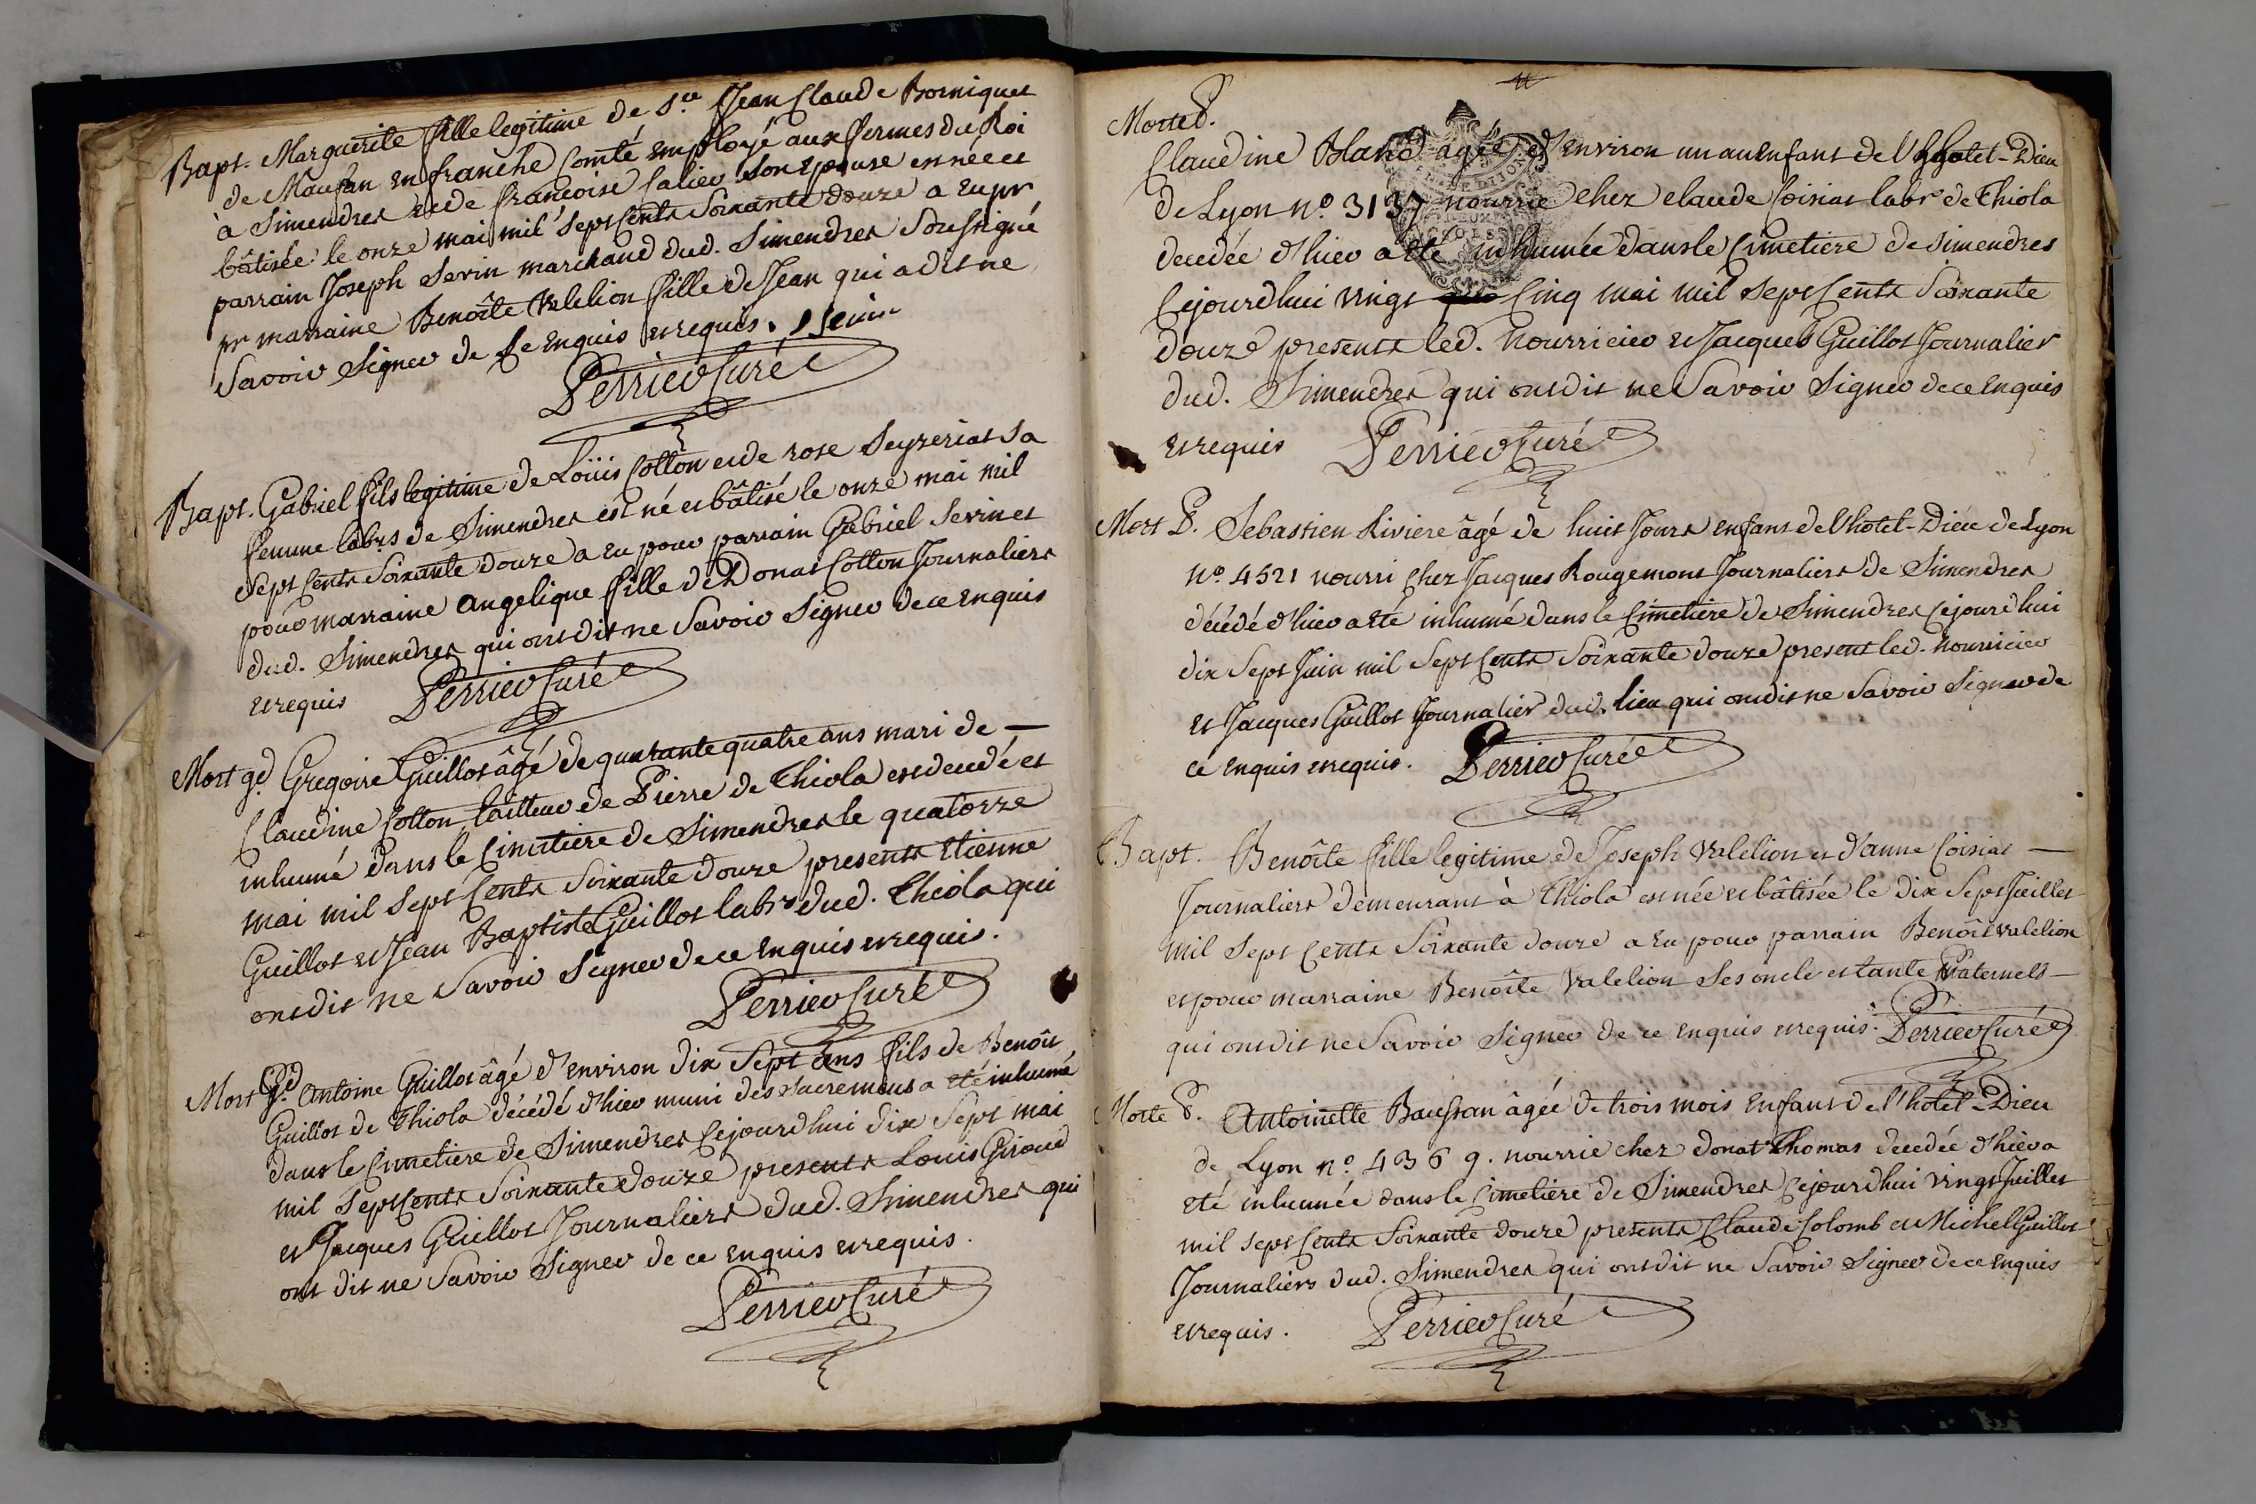 Bapt. Marguerite fille legitime de S.r Jean Claude Borniquet
de Maufan en franche Comté employé aux fermes du Roi
à Simendres et de francoise Calier Son epouse est née et
bâtisée le onze mai mil Sept Cents Soixante douze a eu pr
parrain Joseph Sevin marchand dud. Simendres Soussigné
pr marraine Benoîte Valelion fille de Jean qui a dit ne
Savoir Signer de ce enquis et requis. Sevin
Perrier Curé
Bapt. Gabriel fils legitime de Loüis Cotton et de rose Seyzeriat Sa
femme labrs de Simendres est né et bâtisé le onze mai mil
Sept Cents Soixante douze a eu pour parrain Gabriel Sevin et
pour marraine angelique fille de Donat Cotton Journaliers
dud. Simendres qui ont dit ne Savoir Signer de ce enquis
et requis Perrier Curé
Mort gd. Gregoire Guillot âgé de quarante quatre ans mari de
Claudine Cotton tailleur de Pierre de Thiola est decedé et
inhumé dans le Cimetiere de Simendres le quatorze
mai mil Sept Cents Soixante douze presents etienne
Guillot et Jean Baptiste Guillot labrs dud. Thiola qui
ont dit ne Savoir Signer de ce enquis et requis.
Perrier Curé
Mort gd. Antoine Guillot âgé d'environ dix Sept ans fils de Benoît
Guillot de Thiola décédé d'hier muni des Sacremens a eté inhumé
dans le Cimetiere de Simendres Cejourdhui dix Sept mai
mil Sept Cents Soixante douze presents Louis Giroud
et Jacques Guillot Journaliers dud. Simendres qui
ont dit ne Savoir Signer de ce enquis et requis.
Perrier Curé
Morte P.
Claudine Bland agée d'environ un an enfant de l'hotel-Dieu
de Lyon n.o 3137 nourrie chez claude Coisiat labr de Thiola
decedée d'hier a eté inhumée dans le Cimetiere de Simendres
Cejourdhui vingt Cinq mai mil Sept Cents Soixante
douze presents led. nourricier et Jacques Guillot Journalier
dud. Simendres qui ont dit ne Savoir Signer de ce enquis
et requis Perrier Curé
Mort P. Sebastien Riviere âgé de huit Jours enfant de l'hotel-Dieu de Lyon
n.o 4521 nourri chez Jacques Rougemont Journaliers de Simendres
décédé d'hier a eté inhumé dans le Cimetiere de Simendres Cejourdhui
dix Sept Juin mil Sept Cents Soixante douze present led. nourricier
et Jacques Guillot Journalier dud. lieu qui ont dit ne Savoir Signer de
ce enquis et requis. Perrier Curé
Bapt. Benoîte fille legitime de Joseph Valelion et d'anne Coisiat
Journaliers demeurant à Thiola est née et bâtisée le dix Sept Juillet
mil Sept Cents Soixante douze a eu pour parrain Benoît valelion
et pour marraine Benoîte Valelion Ses oncle et tante Paternels
qui ont dit ne Savoir Signer de ce enquis et requis. Perrier Curé
Morte P. Antoinette Baussan âgée de trois mois enfant de l'hotel-Dieu
de Lyon n.o 4369. nourrie chez donat Thomas decedée d'hier a
eté inhumée dans le Cimetiere de Simendres Cejourdhui vingt Juillet
mil Sept Cents Soixante douze presents Claude Colomb et Michel Guillot
Journaliers dud. Simendres qui ont dit ne Savoir Signer de ce enquis
et requis. Perrier Curé